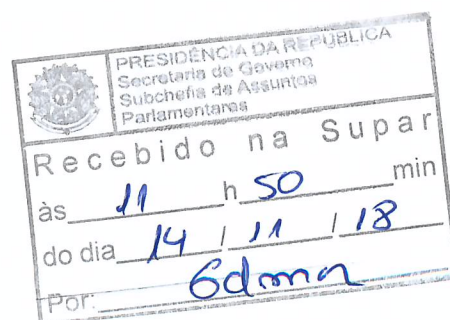 PRESIDÊNCIA DA REPÚBLICA
Secretaria de Governo
Subchefia de Assuntos
Parlamentares
Recebido na Supar
às 11 h 50 min
do dia 14 / 11 / 18
Por: Edmar